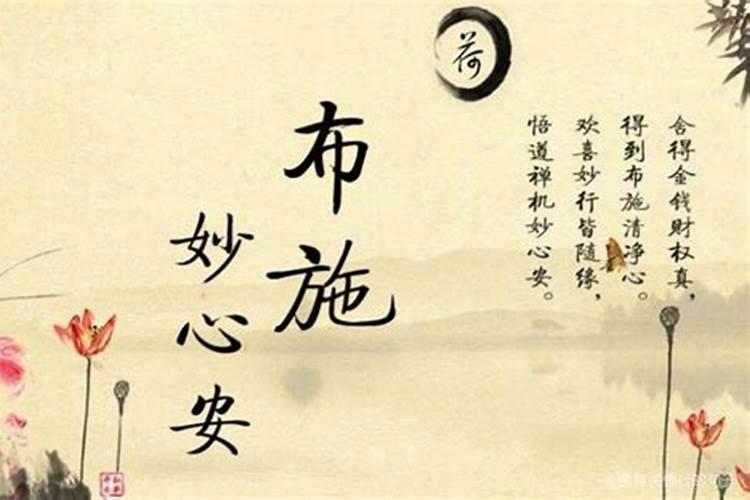 荷
布施
妙心安
舍得金钱财权真，
得到布施清净心。
欢喜妙行皆随缘，
悟道禅机妙心安。